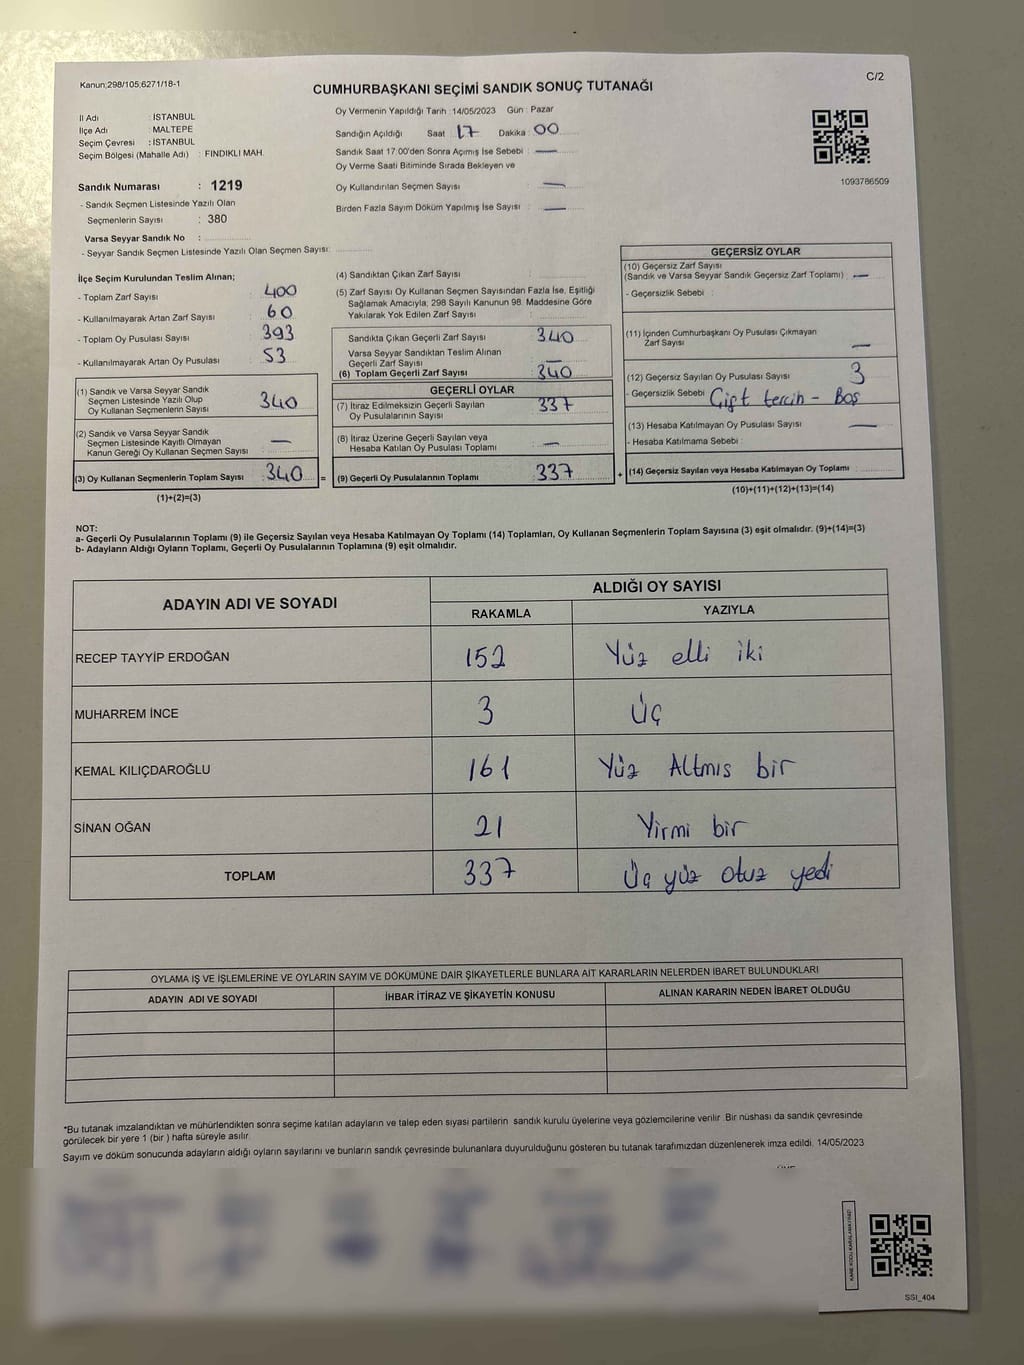 Kanun;298/105;6271/18-1
C/2
CUMHURBAŞKANI SEÇİMİ SANDIK SONUÇ TUTANAĞI
İl Adı : İSTANBUL
İlçe Adı : MALTEPE
Seçim Çevresi : İSTANBUL
Seçim Bölgesi (Mahalle Adı) : FINDIKLI MAH.
Oy Vermenin Yapıldığı Tarih : 14/05/2023 Gün : Pazar
Sandığın Açıldığı Saat 17 Dakika : 00
Sandık Saat 17:00'den Sonra Açımış İse Sebebi : —
Oy Verme Saati Bitiminde Sırada Bekleyen ve
Oy Kullandırılan Seçmen Sayısı —
Birden Fazla Sayım Döküm Yapılmış İse Sayısı : —
1093786509
Sandık Numarası : 1219
- Sandık Seçmen Listesinde Yazılı Olan
Seçmenlerin Sayısı : 380
Varsa Seyyar Sandık No :
- Seyyar Sandık Seçmen Listesinde Yazılı Olan Seçmen Sayısı:
İlçe Seçim Kurulundan Teslim Alınan;
- Toplam Zarf Sayısı 400
- Kullanılmayarak Artan Zarf Sayısı : 60
- Toplam Oy Pusulası Sayısı : 393
- Kullanılmayarak Artan Oy Pusulası : 53
(1) Sandık ve Varsa Seyyar Sandık
Seçmen Listesinde Yazılı Olup
Oy Kullanan Seçmenlerin Sayısı : 340
(2) Sandık ve Varsa Seyyar Sandık
Seçmen Listesinde Kayıtlı Olmayan
Kanun Gereği Oy Kullanan Seçmen Sayısı : —
(3) Oy Kullanan Seçmenlerin Toplam Sayısı : 340 =
(1)+(2)=(3)
(4) Sandıktan Çıkan Zarf Sayısı
(5) Zarf Sayısı Oy Kullanan Seçmen Sayısından Fazla İse, Eşitliği
Sağlamak Amacıyla; 298 Sayılı Kanunun 98. Maddesine Göre
Yakılarak Yok Edilen Zarf Sayısı :
Sandıkta Çıkan Geçerli Zarf Sayısı 340
Varsa Seyyar Sandıktan Teslim Alınan
Geçerli Zarf Sayısı —
(6) Toplam Geçerli Zarf Sayısı 340
GEÇERLİ OYLAR
(7) İtiraz Edilmeksizin Geçerli Sayılan
Oy Pusulalarının Sayısı 337
(8) İtiraz Üzerine Geçerli Sayılan veya
Hesaba Katılan Oy Pusulası Toplamı —
(9) Geçerli Oy Pusulalarının Toplamı 337 +
GEÇERSİZ OYLAR
(10) Geçersiz Zarf Sayısı
(Sandık ve Varsa Seyyar Sandık Geçersiz Zarf Toplamı) —
- Geçersizlik Sebebi :
(11) İçinden Cumhurbaşkanı Oy Pusulası Çıkmayan
Zarf Sayısı —
(12) Geçersiz Sayılan Oy Pusulası Sayısı 3
- Geçersizlik Sebebi Çift tercih - Boş
(13) Hesaba Katılmayan Oy Pusulası Sayısı —
- Hesaba Katılmama Sebebi :
(14) Geçersiz Sayılan veya Hesaba Katılmayan Oy Toplamı :
(10)+(11)+(12)+(13)=(14)
NOT:
a- Geçerli Oy Pusulalarının Toplamı (9) ile Geçersiz Sayılan veya Hesaba Katılmayan Oy Toplamı (14) Toplamları, Oy Kullanan Seçmenlerin Toplam Sayısına (3) eşit olmalıdır. (9)+(14)=(3)
b- Adayların Aldığı Oyların Toplamı, Geçerli Oy Pusulalarının Toplamına (9) eşit olmalıdır.
ADAYIN ADI VE SOYADI ALDIĞI OY SAYISI
RAKAMLA YAZIYLA
RECEP TAYYİP ERDOĞAN 152 Yüz elli iki
MUHARREM İNCE 3 Üç
KEMAL KILIÇDAROĞLU 161 Yüz Altmış bir
SİNAN OĞAN 21 Yirmi bir
TOPLAM 337 Üç yüz otuz yedi
OYLAMA İŞ VE İŞLEMLERİNE VE OYLARIN SAYIM VE DÖKÜMÜNE DAİR ŞİKAYETLERLE BUNLARA AİT KARARLARIN NELERDEN İBARET BULUNDUKLARI
ADAYIN ADI VE SOYADI İHBAR İTİRAZ VE ŞİKAYETİN KONUSU ALINAN KARARIN NEDEN İBARET OLDUĞU
*Bu tutanak imzalandıktan ve mühürlendikten sonra seçime katılan adayların ve talep eden siyasi partilerin sandık kurulu üyelerine veya gözlemcilerine verilir. Bir nüshası da sandık çevresinde
görülecek bir yere 1 (bir ) hafta süreyle asılır.
Sayım ve döküm sonucunda adayların aldığı oyların sayılarını ve bunların sandık çevresinde bulunanlara duyurulduğunu gösteren bu tutanak tarafımızdan düzenlenerek imza edildi. 14/05/2023
KARE KODU KARALAMAYINIZ!
SSI_404